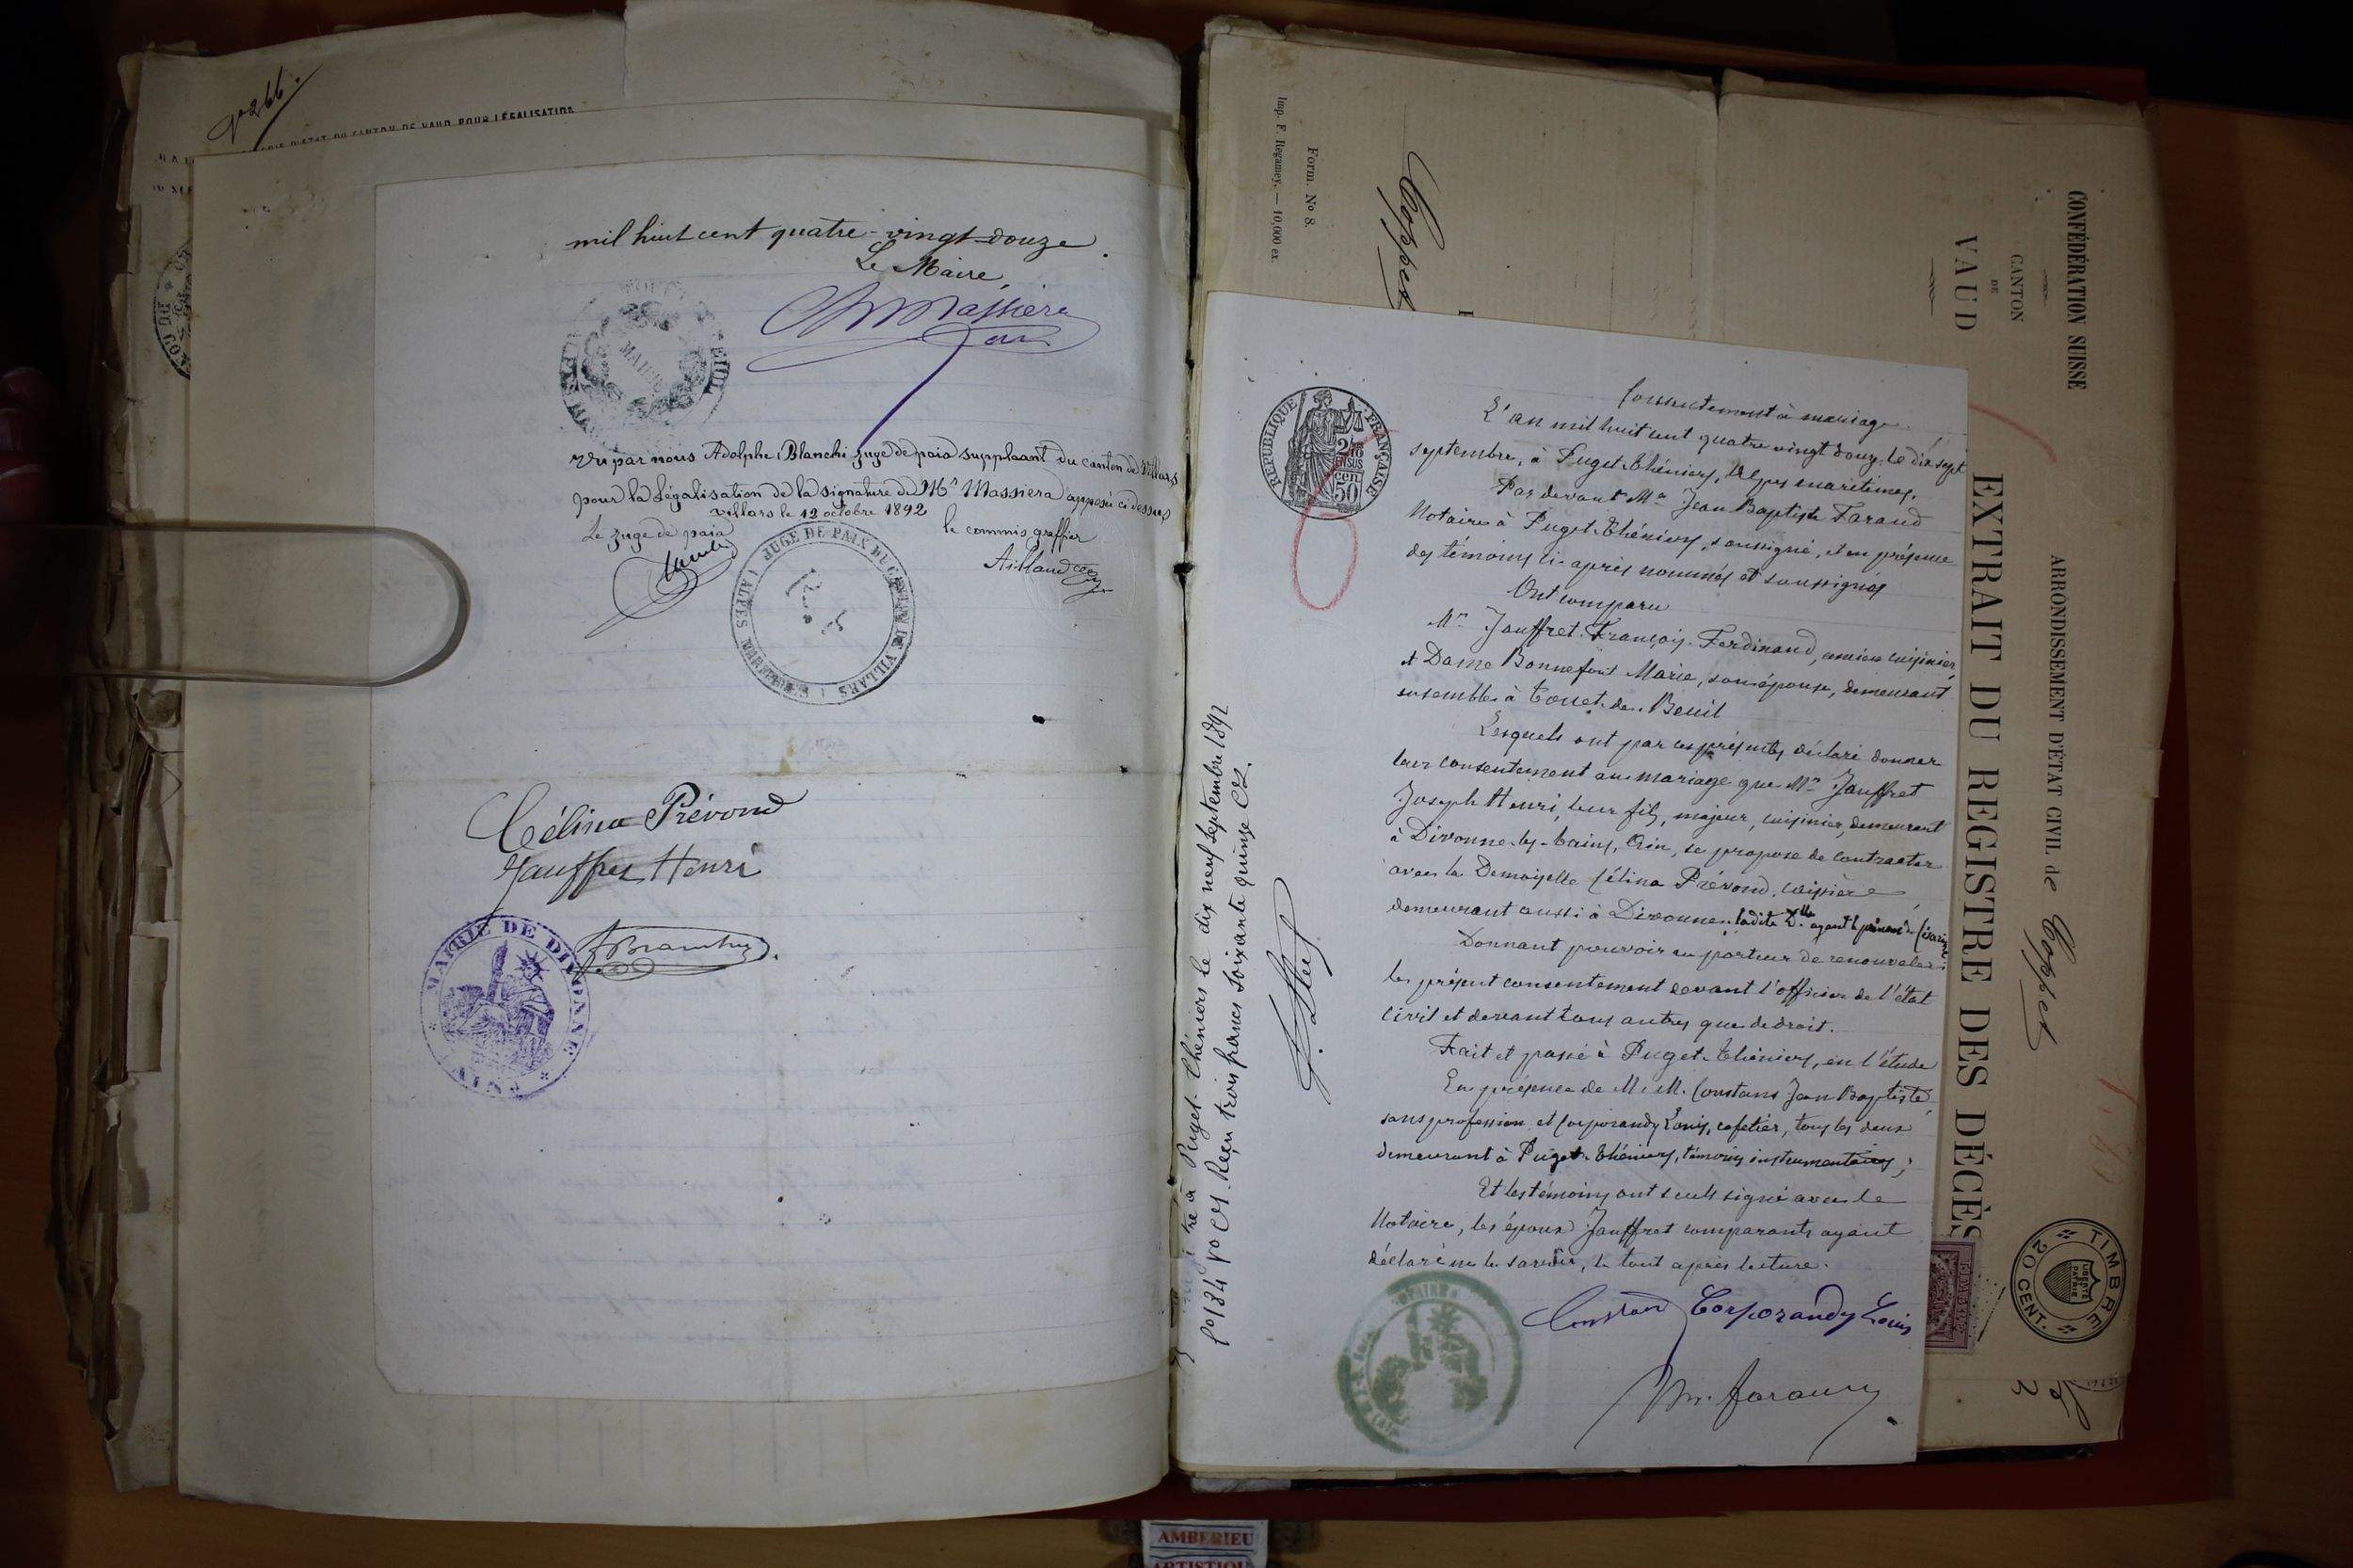 CHANCELLERIE D'ETAT DU CANTON DE VAUD POUR LÉGALISATION
mil huit cent quatre-vingt-douze.
Le Maire,
Massiera
MAIRIE
Vu par nous Adolphe Blanchi juge de paix suppléant du canton de Villars
pour la légalisation de la signature de Mr Massiera apposée ci dessus
Villars le 12 octobre 1892
Le juge de paix
le commis greffier
Aillaud
JUGE DE PAIX DU CANTON DE VILLARS (ALPES MARITIMES)
Célina Prévond
Jauffret Henri
MAIRIE DE DIVONNE
* AIN *
Imp. F. Regamey. — 10,000 ex.
Form. No 8.
Coppet
CONFÉDÉRATION SUISSE
CANTON
DE
VAUD
ARRONDISSEMENT D'ÉTAT CIVIL de Coppet
EXTRAIT DU REGISTRE DES DÉCÈS
TIMBRE
20 CENT.
LIBERTÉ
PATRIE
RÉPUBLIQUE FRANÇAISE
2/10
EN SUS
50
cen
Consentement à mariage.
L'an mil huit cent quatre vingt douze, le dix sept
septembre, à Puget-Théniers, Alpes maritimes,
Par devant Me Jean Baptiste Faraud
Notaire à Puget-Théniers, soussigné, et en présence
des témoins ci-après nommés et soussignés
Ont comparu
Mr Jauffret François Ferdinand, ancien cuisinier,
et Dame Bonnefont Marie, son épouse, demeurant
ensemble à Touet-de-Beuil
Lesquels ont par ces présentes déclaré donner
leur consentement au mariage que Mr Jauffret
Joseph Henri, leur fils, majeur, cuisinier, demeurant
à Divonne-les-bains, Ain, se propose de contracter
avec la Demoiselle Célina Prévond, cuisinière,
demeurant aussi à Divonne. ladite Dlle ayant le prénom de
Donnant pouvoir au porteur de renouveler
le présent consentement devant l'officier de l'état
civil et devant tous autres que de droit.
Fait et passé à Puget-Théniers, en l'étude
En présence de M.M. Constans Jean Baptiste,
sans profession, et Corporandy Louis, cafetier, tous les deux
demeurant à Puget-Théniers, témoins instrumentaires;
Et les témoins ont seuls signé avec le
Notaire, les époux Jauffret comparants ayant
déclaré ne le savoir, le tout après lecture.
Constans Corporandy Louis
Faraud
Enregistré à Puget-Théniers le dix neuf septembre 1892
fo 134 Vo C4. Reçu trois francs soixante quinze Ces.
AMBERIEU